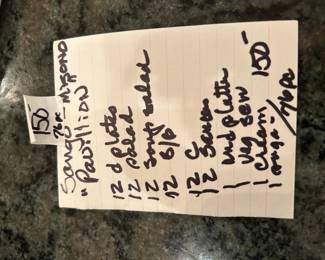 150-
76pc
Sango Mikono
"Pavillion"
12 d plates
12 salad
12 soup salad
12 B/b
12 C
12 Saucers
1 md platter
1 veg bow
1 cream
1 sugar
150-
/76pc